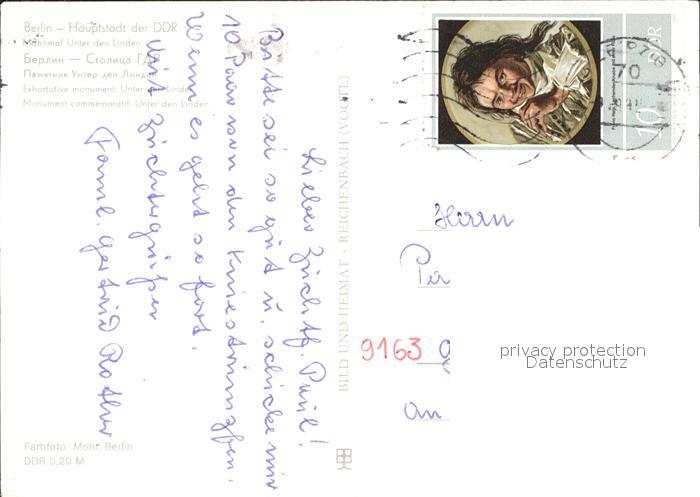 Berlin — Hauptstadt der DDR
Mahnmal Unter den Linden
Берлин — Столица ГДР
Памятник Унтер ден Линден
Exhortative monument, Unter den Linden
Monument commemoratif, Unter den Linden
Lieber Zuchtf. Paul!
Bitte sei so gut u. schicke mir
10 Paar von den Kniestrümpfen.
Wenn es geht so fort.
Mit Züchtergrüßen
Faml. Gertrud Rother
BILD UND HEIMAT · REICHENBACH (VOGTL)
DDR
10
70
Herrn
9163
An
privacy protection
Datenschutz
Farbfoto: Mohr, Berlin
DDR 0,20 M